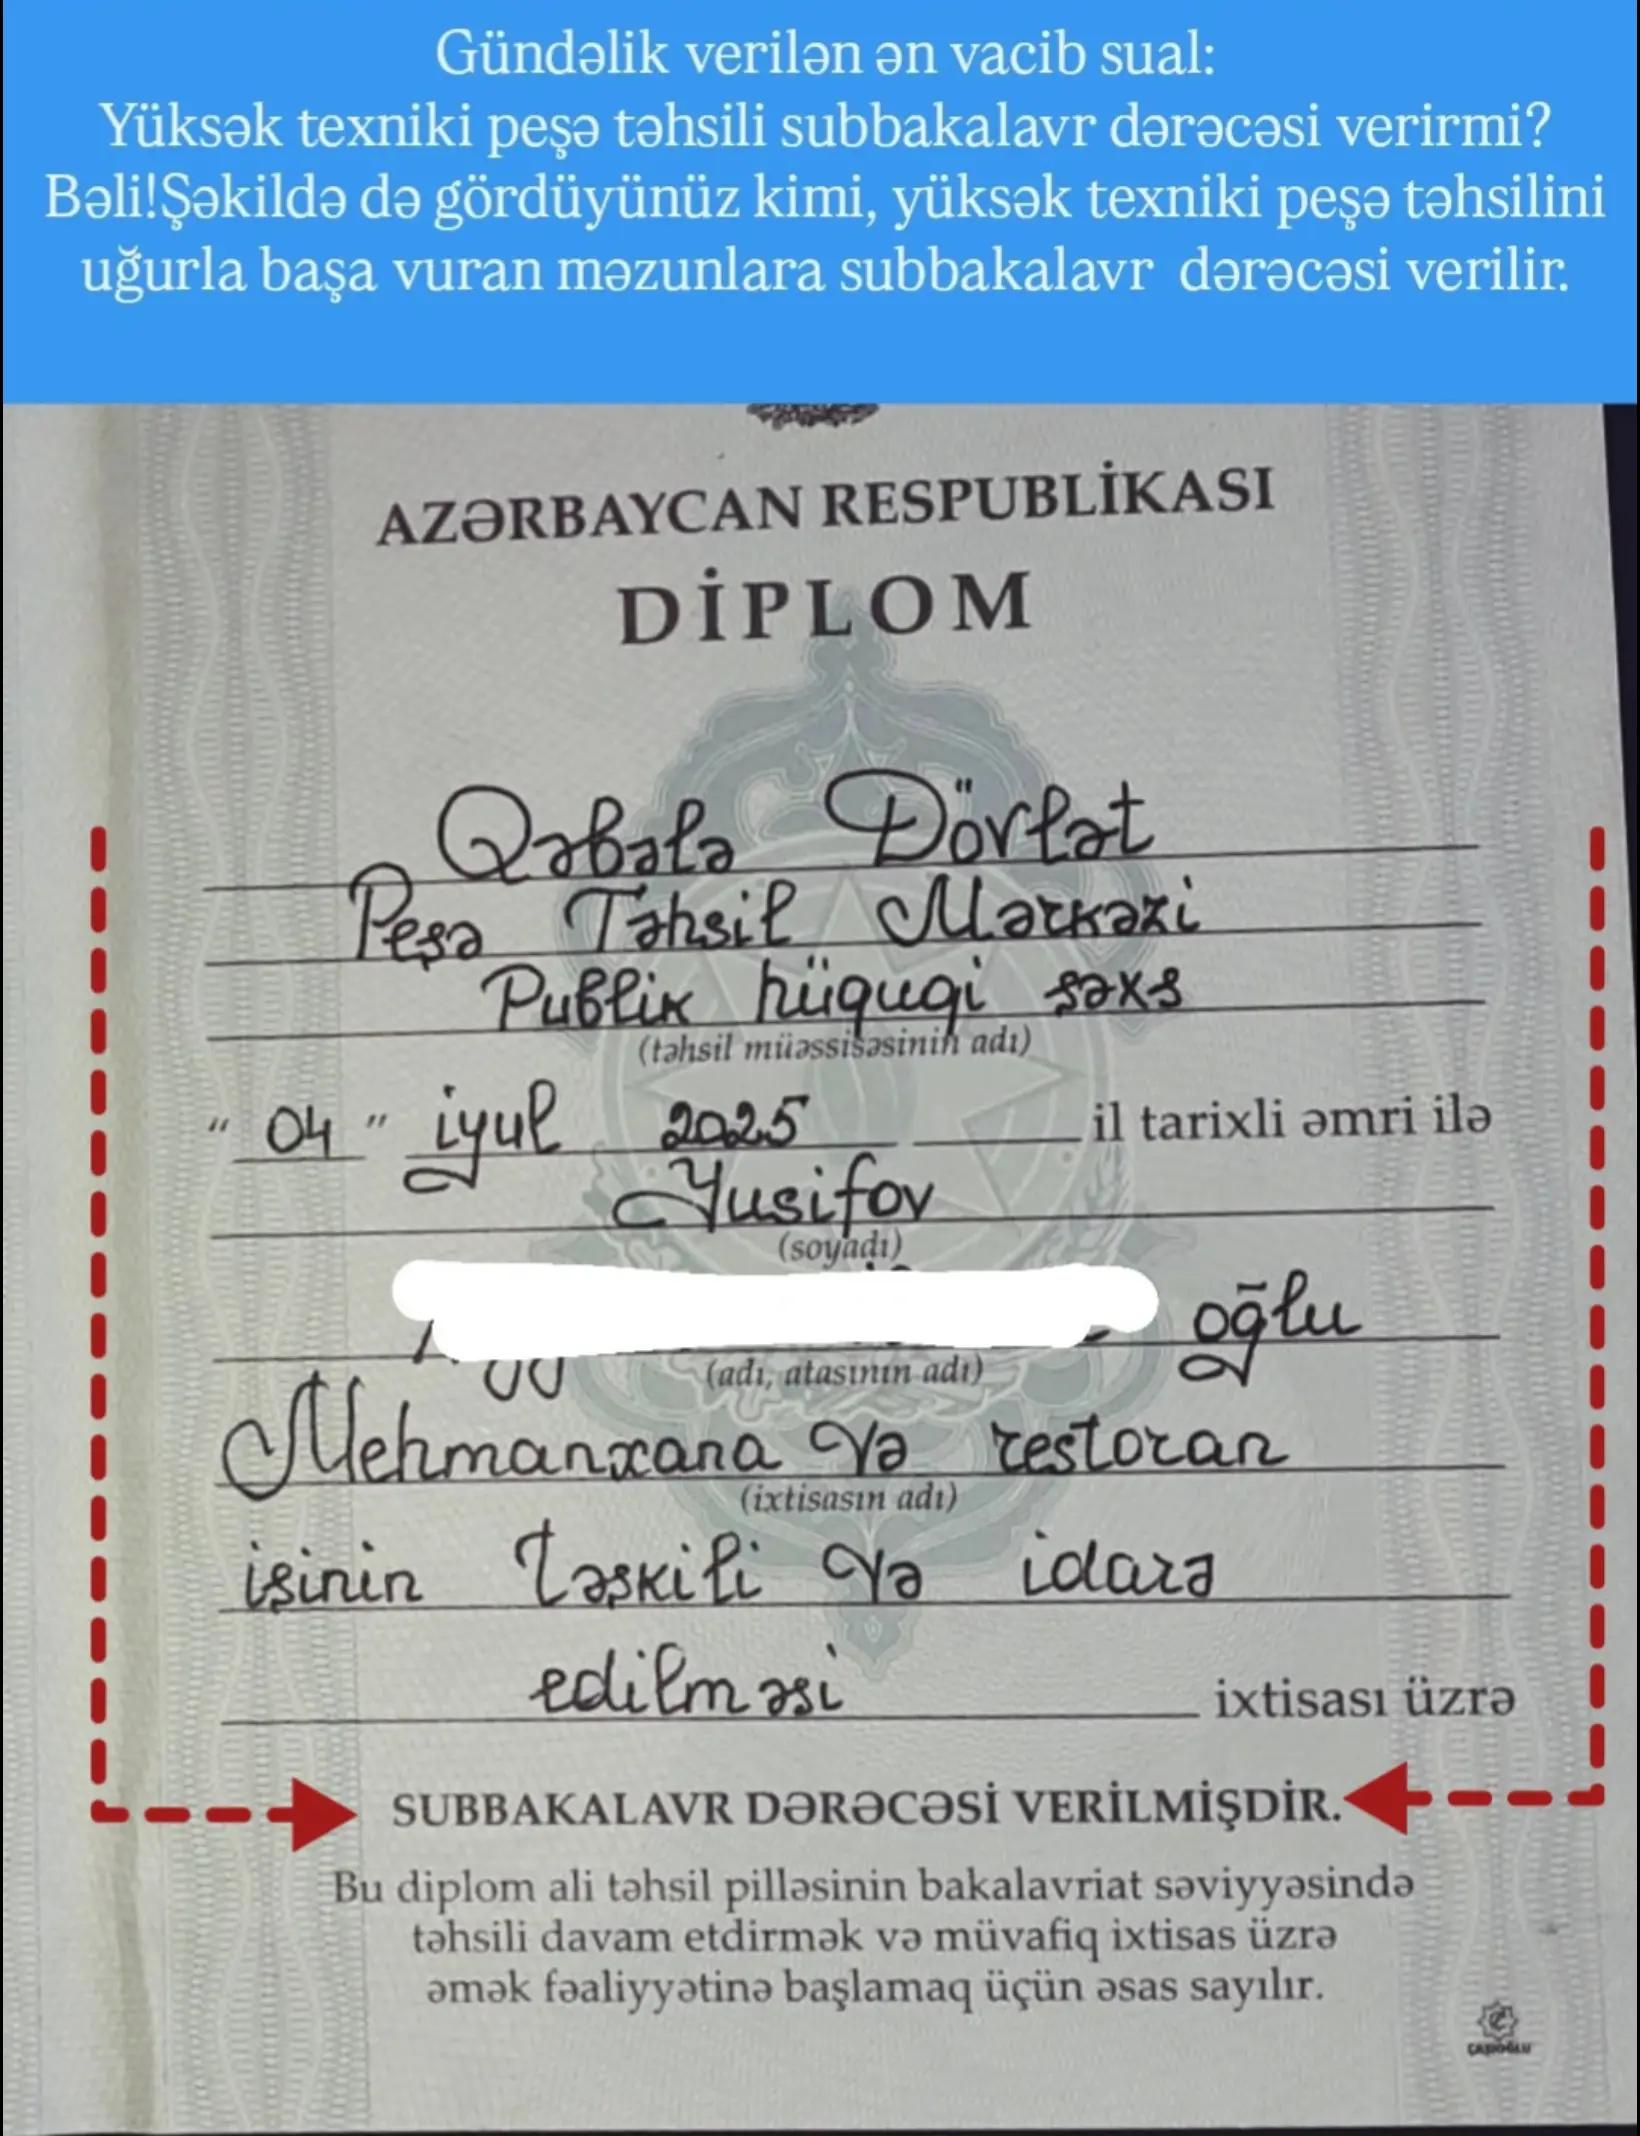 Gündəlik verilən ən vacib sual:
Yüksək texniki peşə təhsili subbakalavr dərəcəsi verirmi?
Bəli!Şəkildə də gördüyünüz kimi, yüksək texniki peşə təhsilini
uğurla başa vuran məzunlara subbakalavr dərəcəsi verilir.
AZƏRBAYCAN RESPUBLİKASI
DİPLOM
Qəbələ Dövlət
Peşə Təhsil Mərkəzi
Publik hüquqi şəxs
(təhsil müəssisəsinin adı)
" 04 " iyul 2025 il tarixli əmri ilə
Yusifov
(soyadı)
oğlu
(adı, atasının adı)
Mehmanxana və restoran
(ixtisasın adı)
işinin təşkili və idarə
edilməsi ixtisası üzrə
SUBBAKALAVR DƏRƏCƏSİ VERİLMİŞDİR.
Bu diplom ali təhsil pilləsinin bakalavriat səviyyəsində
təhsili davam etdirmək və müvafiq ixtisas üzrə
əmək fəaliyyətinə başlamaq üçün əsas sayılır.
ÇAŞIOĞLU